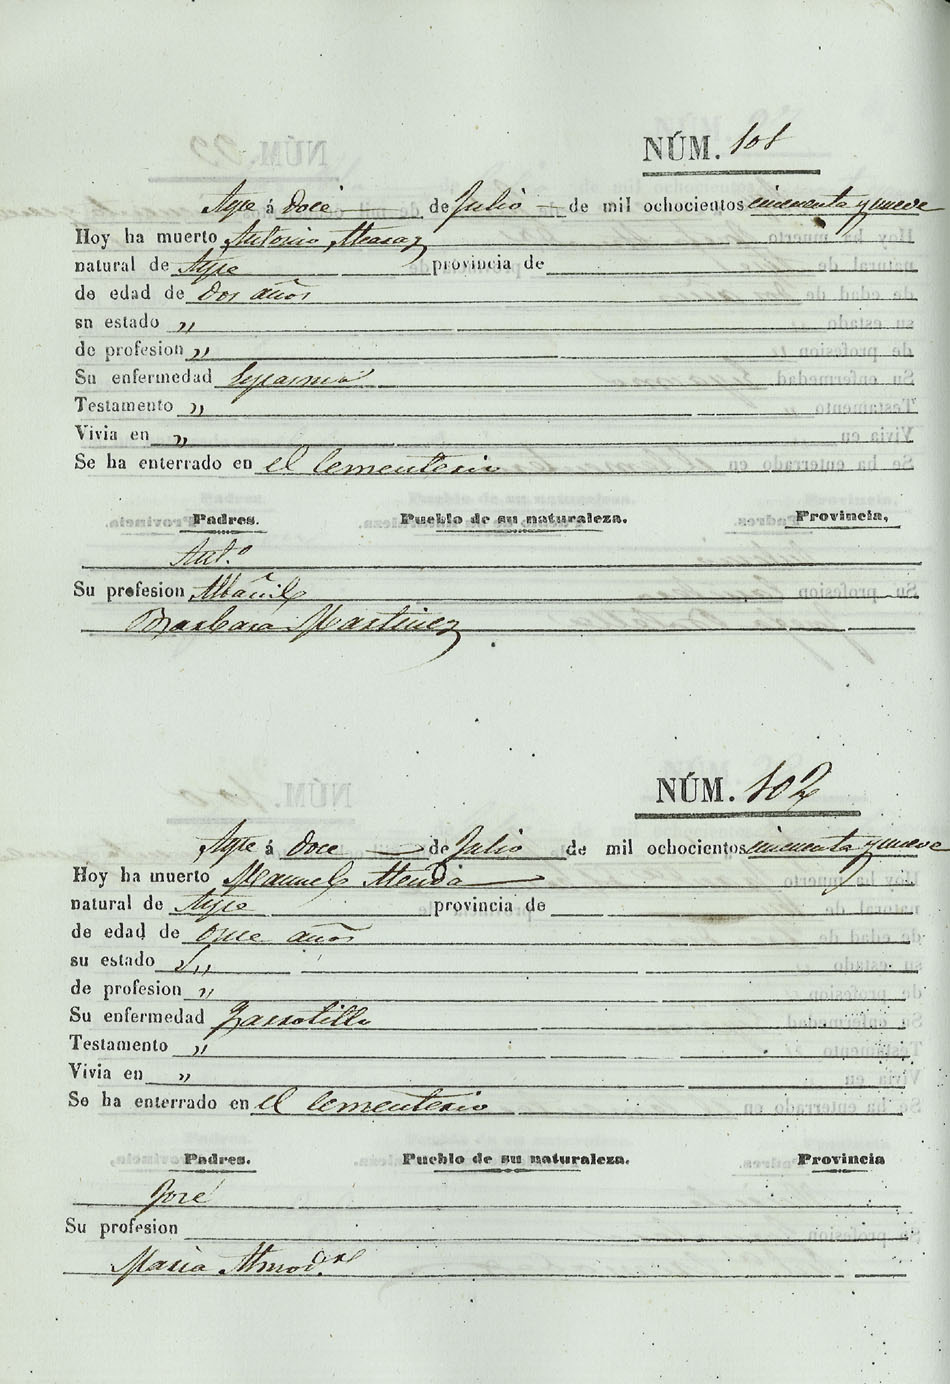 NÚM. 101
Aspe á doce de Julio de mil ochocientos cincuenta y nueve
Hoy ha muerto Antonio Alcaraz
natural de Aspe provincia de
de edad de dos años
sn estado „
de profesion „
Su enfermedad
Testamento „
Vivia en „
Se ha enterrado en el Cementerio
Padres. Pueblo de su naturaleza. Provincia,
Ant.º
Su profesion Albañil
Barbara Martinez
NÚM. 102
Aspe á doce de Julio de mil ochocientos cincuenta y nueve
Hoy ha muerto Manuel
natural de Aspe provincia de
de edad de once años
su estado S „
de profesion „
Su enfermedad Garrotillo
Testamento „
Vivia en „
Se ha enterrado en el Cementerio
Padres. Pueblo de su naturaleza. Provincia
José
Su profesion
Maria